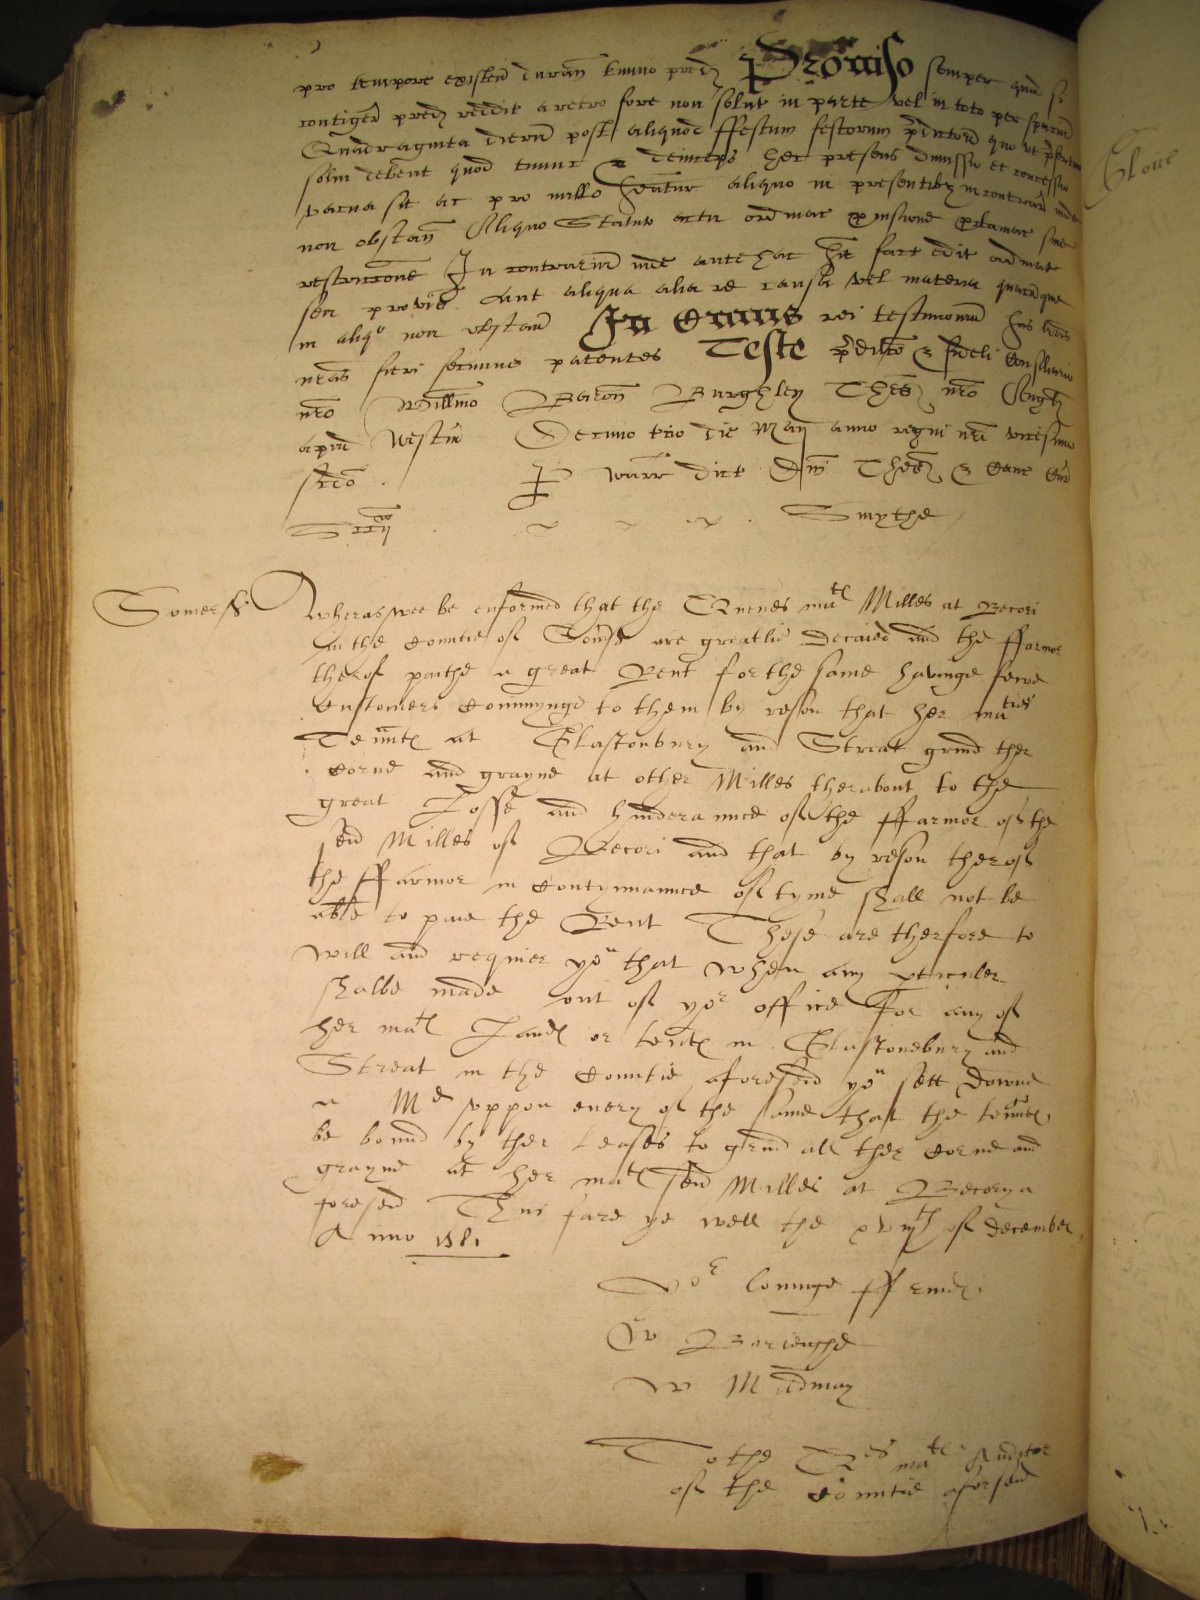 pro tempore existeñ durañ tmino pred Proviso semper quod si
contigerit pred reddit a retro fore non solut in parte vel in toto per spacium
Quadraginta dierum post aliquod ffestum festorum p̃dictorum quo ut p̃fertur
solui debent quod tunc & deinceps hec presens dimissio et concessio
vacua sit ac pro nullo heatur aliquo in presentibus in contrariũ inde
non obstañ Aliquo Statuto actu ordinac proclamac sive
restriccione In contrarium inde antehac hit fact edit ordinat
seu provis Aut aliqua alia re causa vel materia quacunque
in aliquo non obstañ In Cuius rei testimoniũ has lr̃as
nr̃as fieri fecimus patentes Teste p̃dilc̃o & fideli Consiliario
nr̃o Willm̃o Baroñ Burghley Thes nr̃o Angl
apud Westm̃ Decimo tcio die Maij anno regni nr̃i vicesimo
scdo . P warr dict Dñi Thes &
Smythe
Somerss
Wheras wee be enformed that the Quenes matl Milles at Becori
in the Countie of Somss are greatlie Decaied and the ffarmor
therof paithe a great Rent for the same havinge fewe
Customers Comminge to them by reson that her maties
Tennts at Glastonbury and Streat grind ther
Corne and grayne at other Milles therabout to the
great Losse and hinderannce of the ffarmor of the
seid Milles of Becori and that by reson therof
the ffarmor in Contynnannce of tyme shall not be
able to paie the Rent These are therfore to
will and requier you that when any pticuler
shalbe made out of yor office For any of
her matl Landes or tents in Glastonebury and
Streat in the Countie aforeseid you sett Downe
a Md vppon every of the same that the tennts
be bound by ther Leases to grind all ther Corne and
grayne at her matl seid Milles at Becory a
foreseid Thus fare ye well the xviijth of December
Anno 1581
Yor lovinge ffrends
W Burleighe
W Mildmay
To the Qes matl Auditor
of the Countie aforseid